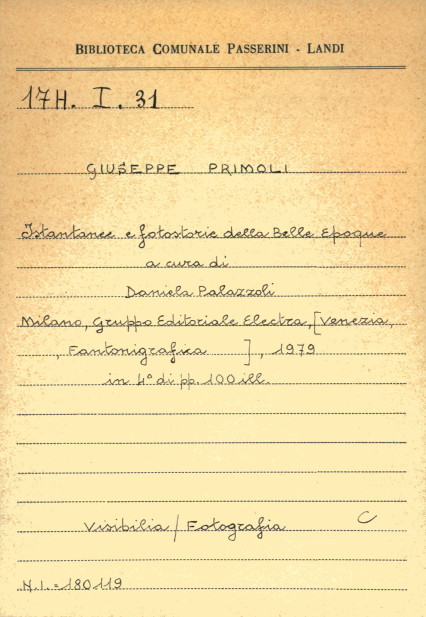 BIBLIOTECA COMUNALE PASSERINI - LANDI
17H. I. 31
GIUSEPPE PRIMOLI
Istantanee e fotostorie della Belle Epoque
a cura di
Daniela Palazzoli
Milano, Gruppo Editoriale Electra, [Venezia,
, Fantonigrafica ], 1979
in 4° di pp. 100 ill.
Visibilia / Fotografia C
N.I. = 180119